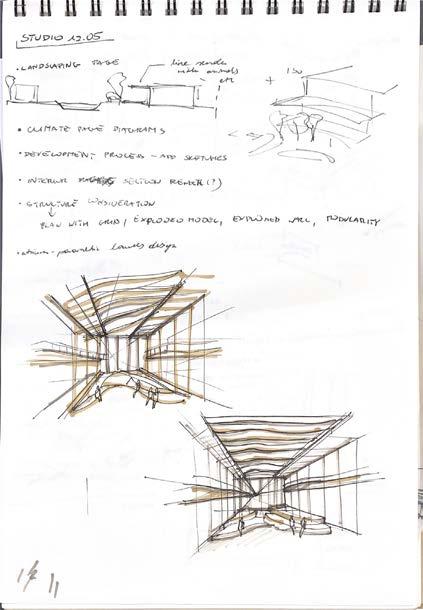 STUDIO 12.05
• LANDSCAPING PAGE
line render
make animals
etc
+ ISO
• CLIMATE PAGE DIAGRAMS
• DEVELOPMENT PROCESS - ADD SKETCHES
• INTERIOR SECTION RENDER(?)
• STRUCTURE CONSIDERATION
PLAN WITH GRID, EXPLODED MODEL, EXPLODED ARC, MODULARITY
• atrium - parametric louvres design